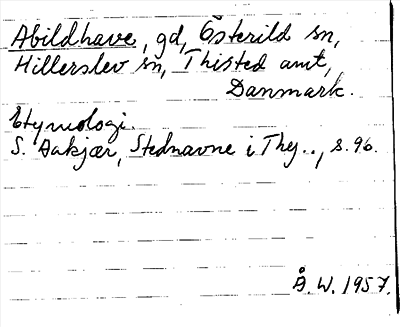 Abildhave, gd, Österild sn,
Hillerslev sn, Thisted amt,
Danmark.
Etymologi.
S. Aakjær, Stednavne i Thy.., s. 96.
Å. W. 1957.